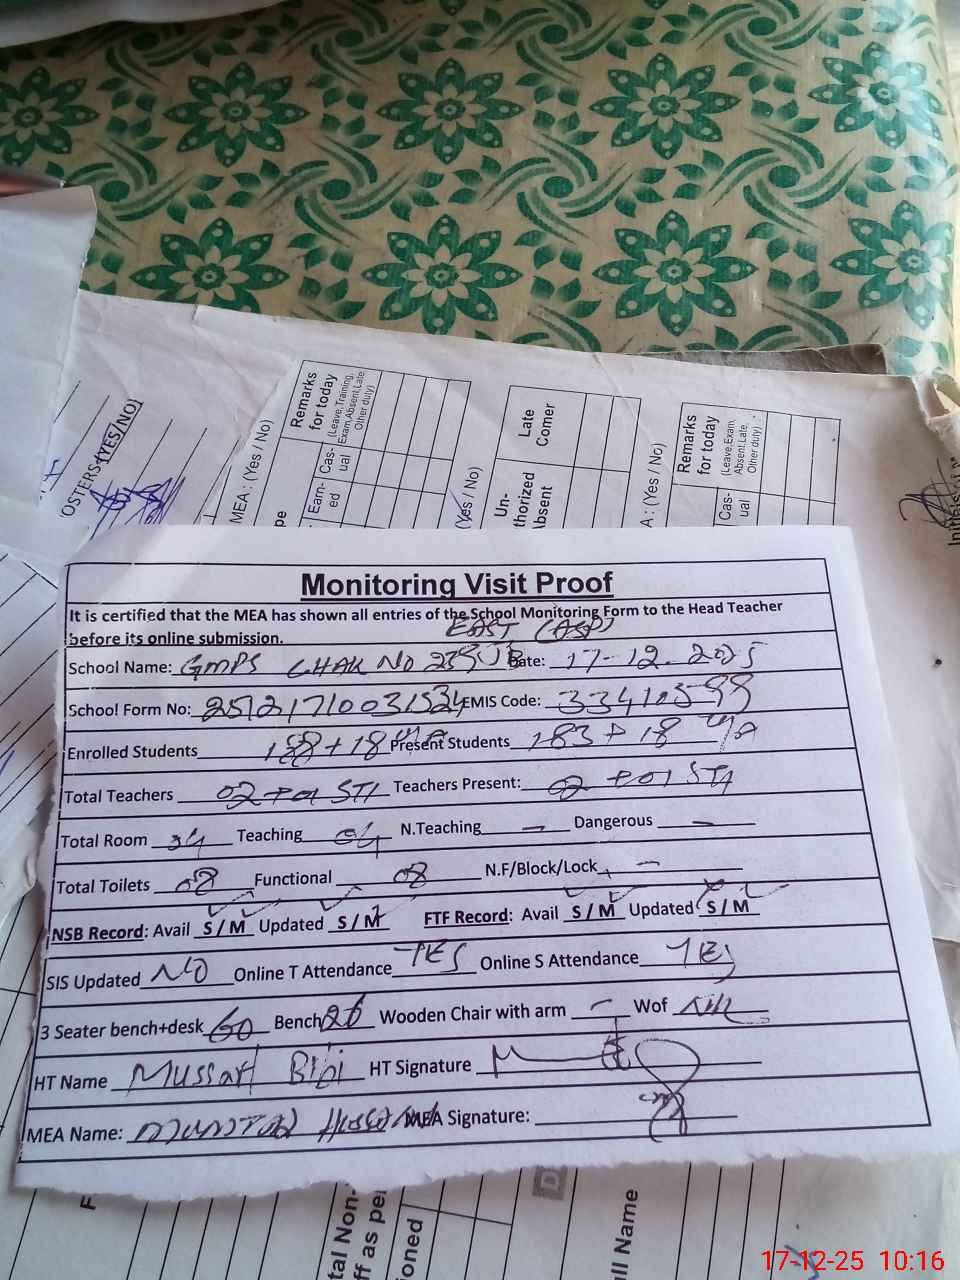 OSTERS (YES/NO)
MEA : (Yes / No)
Remarks
for today
(Leave,Training,
Exam,Absent,Late,
Other duty)
Earn-
ed
Cas-
ual
(Yes / No)
Late
Comer
Un-
thorized
Absent
A : (Yes / No)
Remarks
for today
(Leave,Exam,
Absent,Late,
Other duty)
Cas-
ual
Monitoring Visit Proof
It is certified that the MEA has shown all entries of the School Monitoring Form to the Head Teacher
before its online submission.
EAST
School Name: GMPS CHAK NO Date: 17-12-2025
School Form No: EMIS Code: 33410599
Enrolled Students + 18 Present Students 183 + 18
Total Teachers 02 + 01 STI Teachers Present: 02 + 01 STI
Total Room 04 Teaching 04 N.Teaching — Dangerous —
Total Toilets 08 Functional 08 N.F/Block/Lock —
NSB Record: Avail S / M Updated S / M FTF Record: Avail S / M Updated S / M
SIS Updated NO Online T Attendance YES Online S Attendance YES
3 Seater bench+desk 60 Bench 26 Wooden Chair with arm — Wof Nil
HT Name Mussart Bibi HT Signature
MEA Name: MEA Signature:
tal Non-
ff as per
ioned
D
all Name
17-12-25 10:16